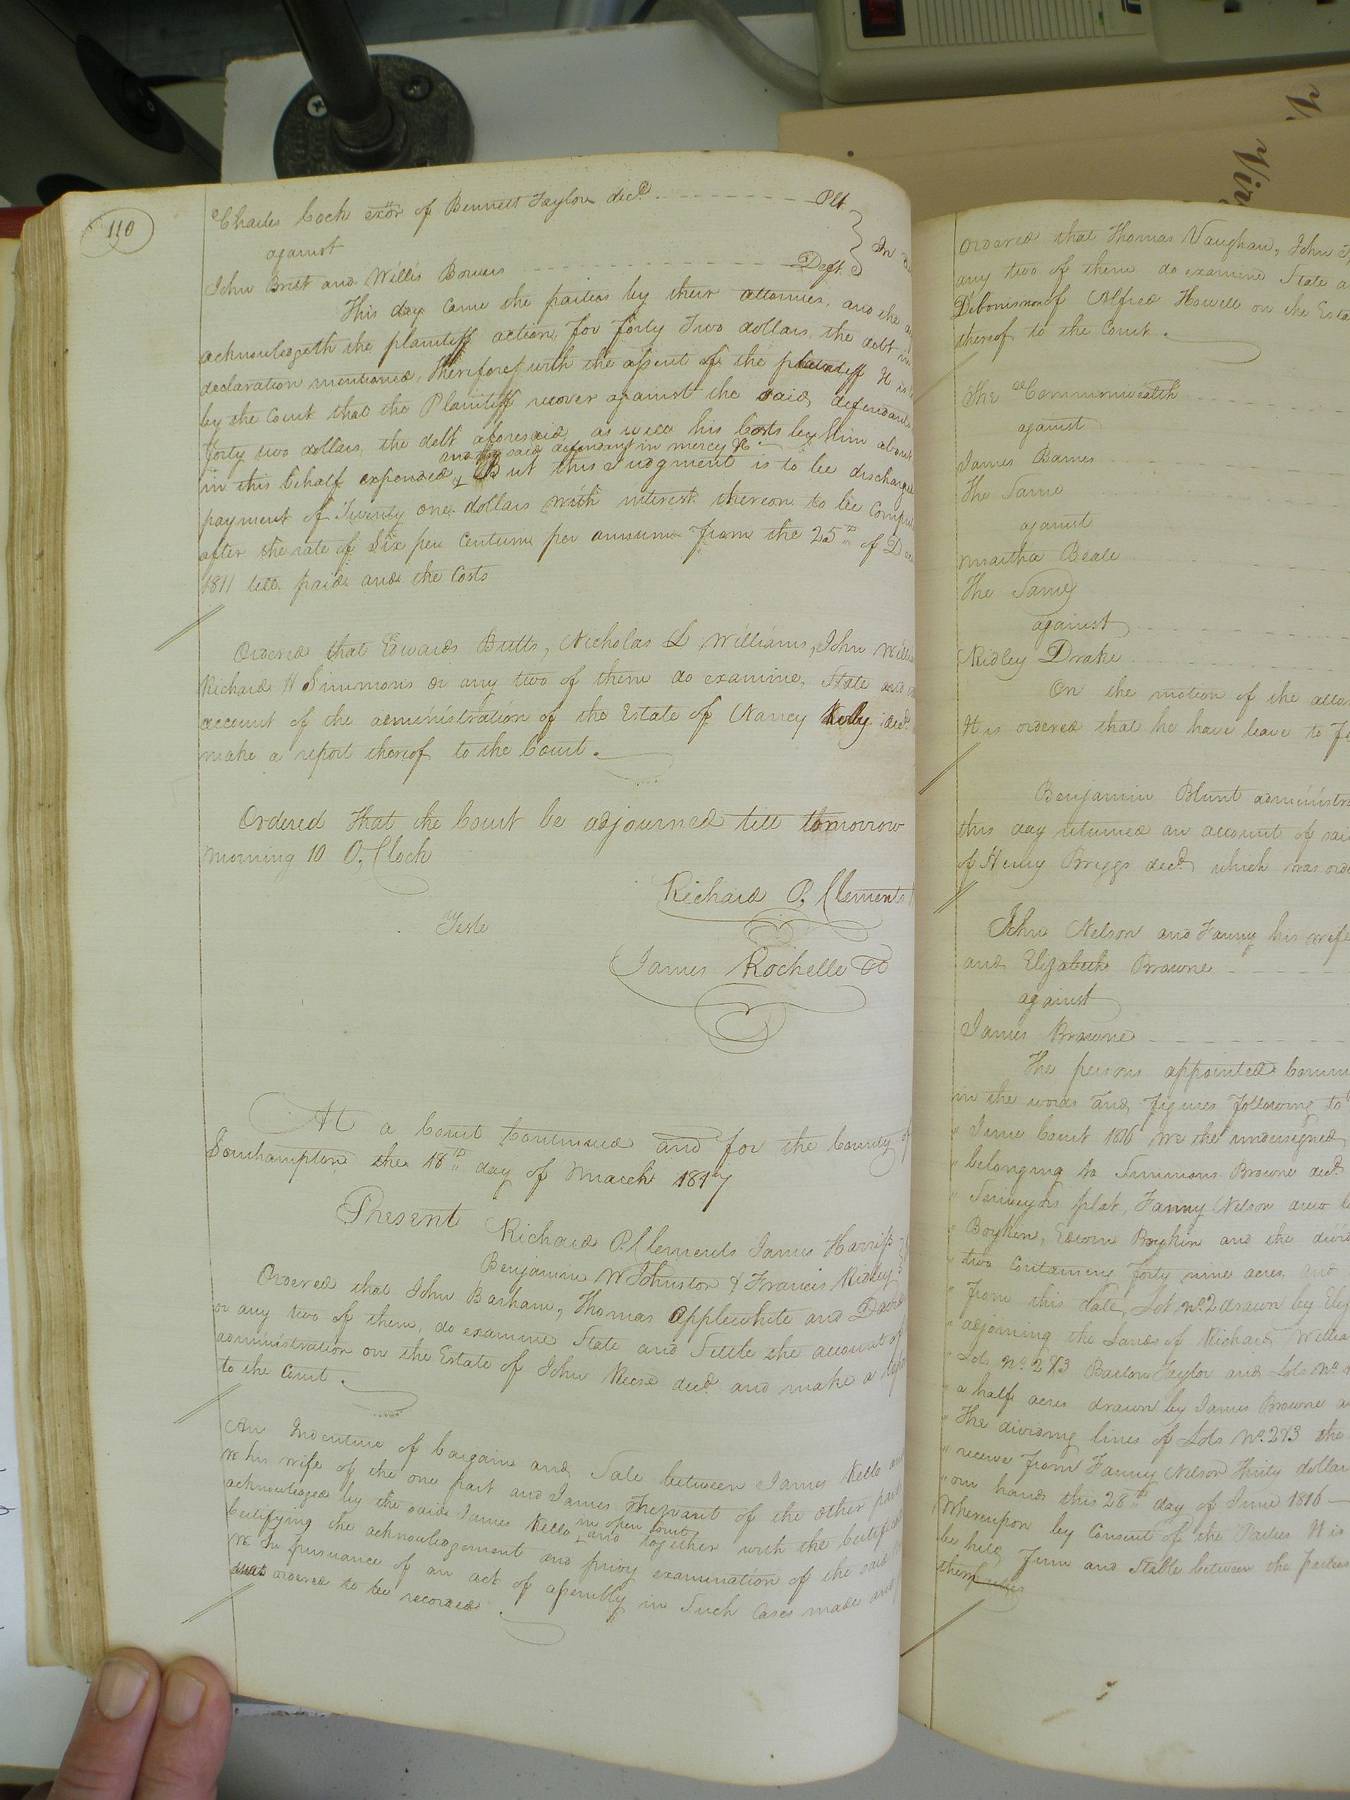 110
Charles Cock exor of Bennett Taylor decd. Plt
against In
John Bret and Willis Bowers Deft.
This day came the parties by their attornies, and the
acknowledgeth the plaintiff action, for forty Two dollars, the debt
declaration mentioned, Therefore with the assent of the plaintiff It is
by the Court that the Plaintiff recover against the said, defendants
forty two dollars, the debt aforesaid, as well his Costs by him about
and the said defendant in mercy &c
in this behalf expended, But this Judgment is to be discharged
payment of Twenty one dollars with interest thereon to be Computed
after the rate of Six per Centum per annum from the 25th of Dec
1811 till paid and the Costs
Ordered that Edwards Butts, Nicholas L Williams, John
Richard H Simmons or any two of them do examine, State and
account of the administration of the Estate of Nancy Kelly decd.
make a report thereof to the Court.
Ordered That the Court be adjourned till tomorrow
morning 10 O,Clock
Richard P. Clements
Teste
James Rochelle
At a Court Continued and for the County of
Southampton the 18th day of March 1817
Present Richard P. Clements James Harriss
Benjamin W Johnston & Francis Ridley
Ordered that John Barham, Thomas Applewhite and David
or any two of them, do examine State and Settle the account of
administration on the Estate of John Reese decd. and make a report
to the Court.
An Indenture of bargain and Sale between James Kello and
his wife of the one part and James of the other part
acknowledged by the said James Kello in open Court and together with the Certificate
Certifying the acknowledgement and privy examination of the said
In pursuance of an act of assembly in Such Cases made and
was ordered to be recorded.
Ordered that Thomas Vaughan, John
any two of them do examine State a
Debonisnon of Alfred Howell on the Esta
thereof to the Court.
The Commonwealth
against
James Barnes
The Same
against
Martha Beale
The Same
against
Ridley Drake
On the motion of the atto
It is ordered that he have leave to f
Benjamin Blunt administra
this day returned an account of sai
of Henry Briggs decd. which was orde
John Nelson and Fanny his wife
and Elizabeth Browne
against
James Browne
The persons appointed Comm
in the words and, figures following to
" June Court 1816 We the undersigned
" belonging to Simmons Browne decd.
" Surveyors plat, Fanny Nelson
" Boykin, Edwin Boykin and the divid
" two Containing forty nine acres, and
" from this date, Lot No. 2 drawn by Eliz
" adjoining the Lands of Richard Willia
" Lots No. 2&3 Barton Taylor and Lots No.
" a half acres drawn by James Browne a
" The dividing lines of Lots No. 2&3 the
" receive from Fanny Nelson Thirty dollar
" our hands this 28th day of June 1816 —
Whereupon by Consent of the Parties It is
be held firm and stable between the parties
them